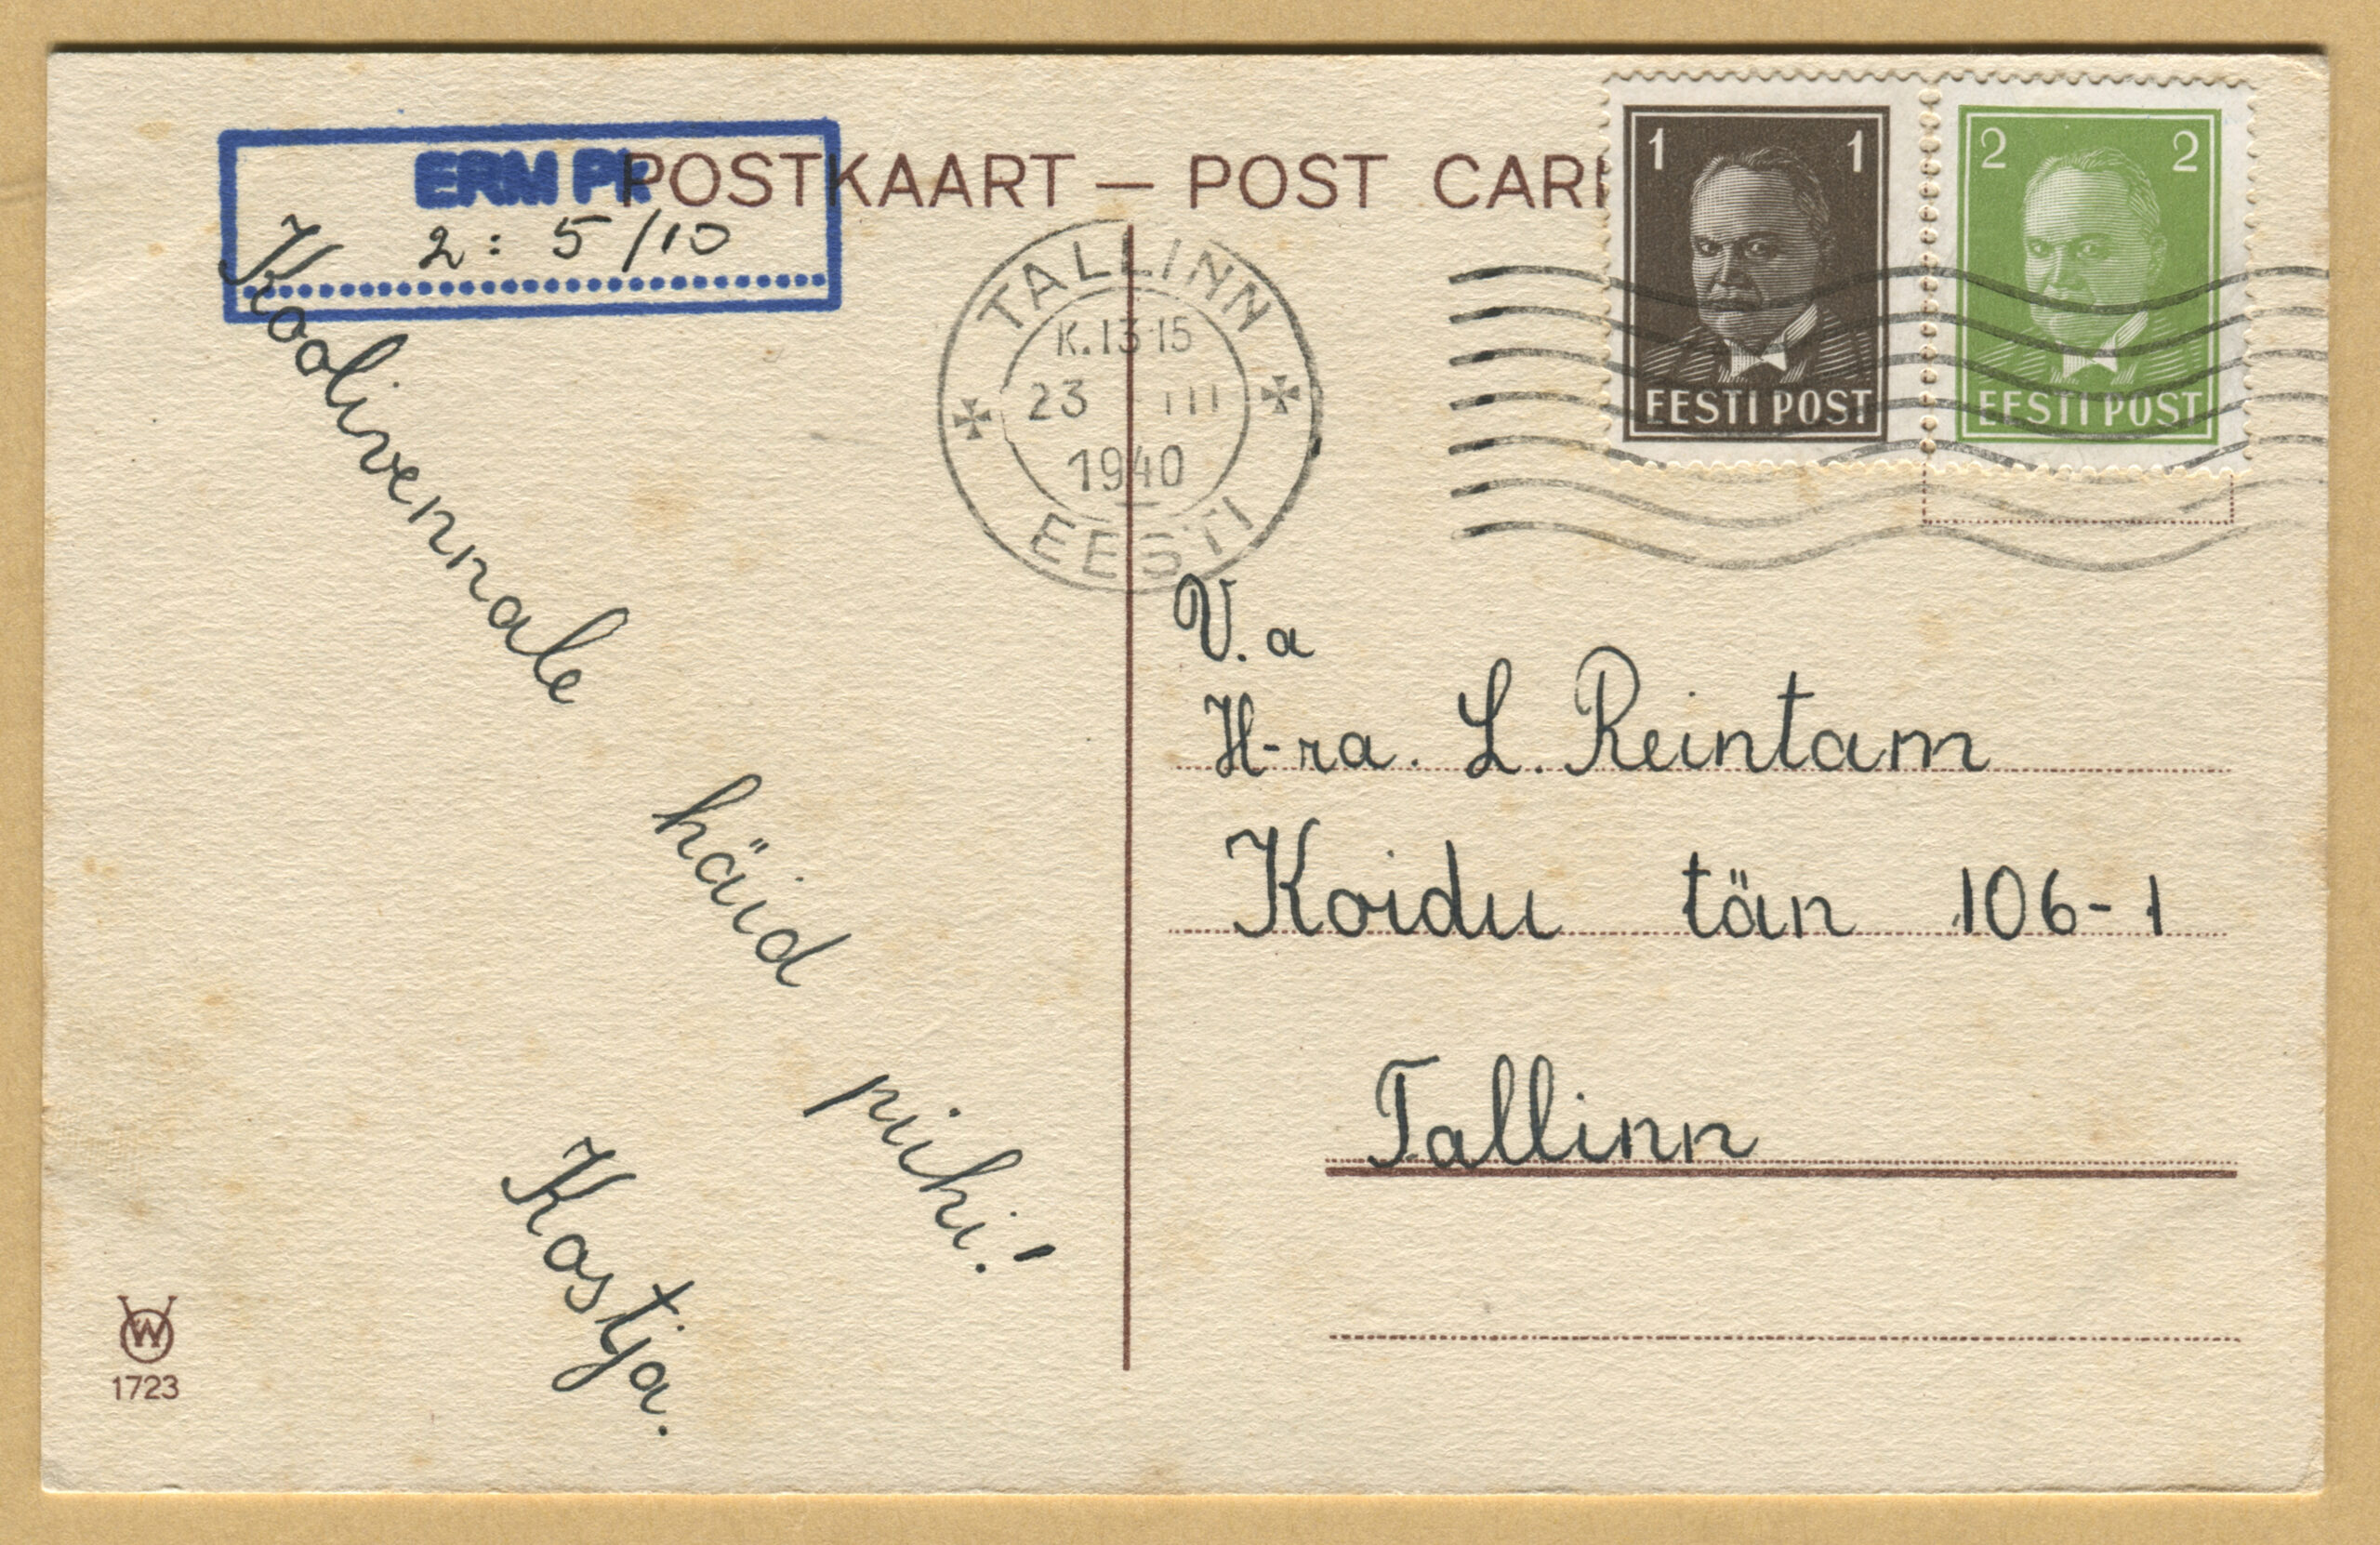 ERM PK
2: 5/10
POSTKAART — POST CAR
1 1
EESTI POST
2 2
EESTI POST
TALLINN
K.13·15
23 III
1940
EESTI
Koolivennale
häid
pühi!
Kostja.
V.a
H-ra. L. Reintam
Koidu tän 106-1
Tallinn
W
1723